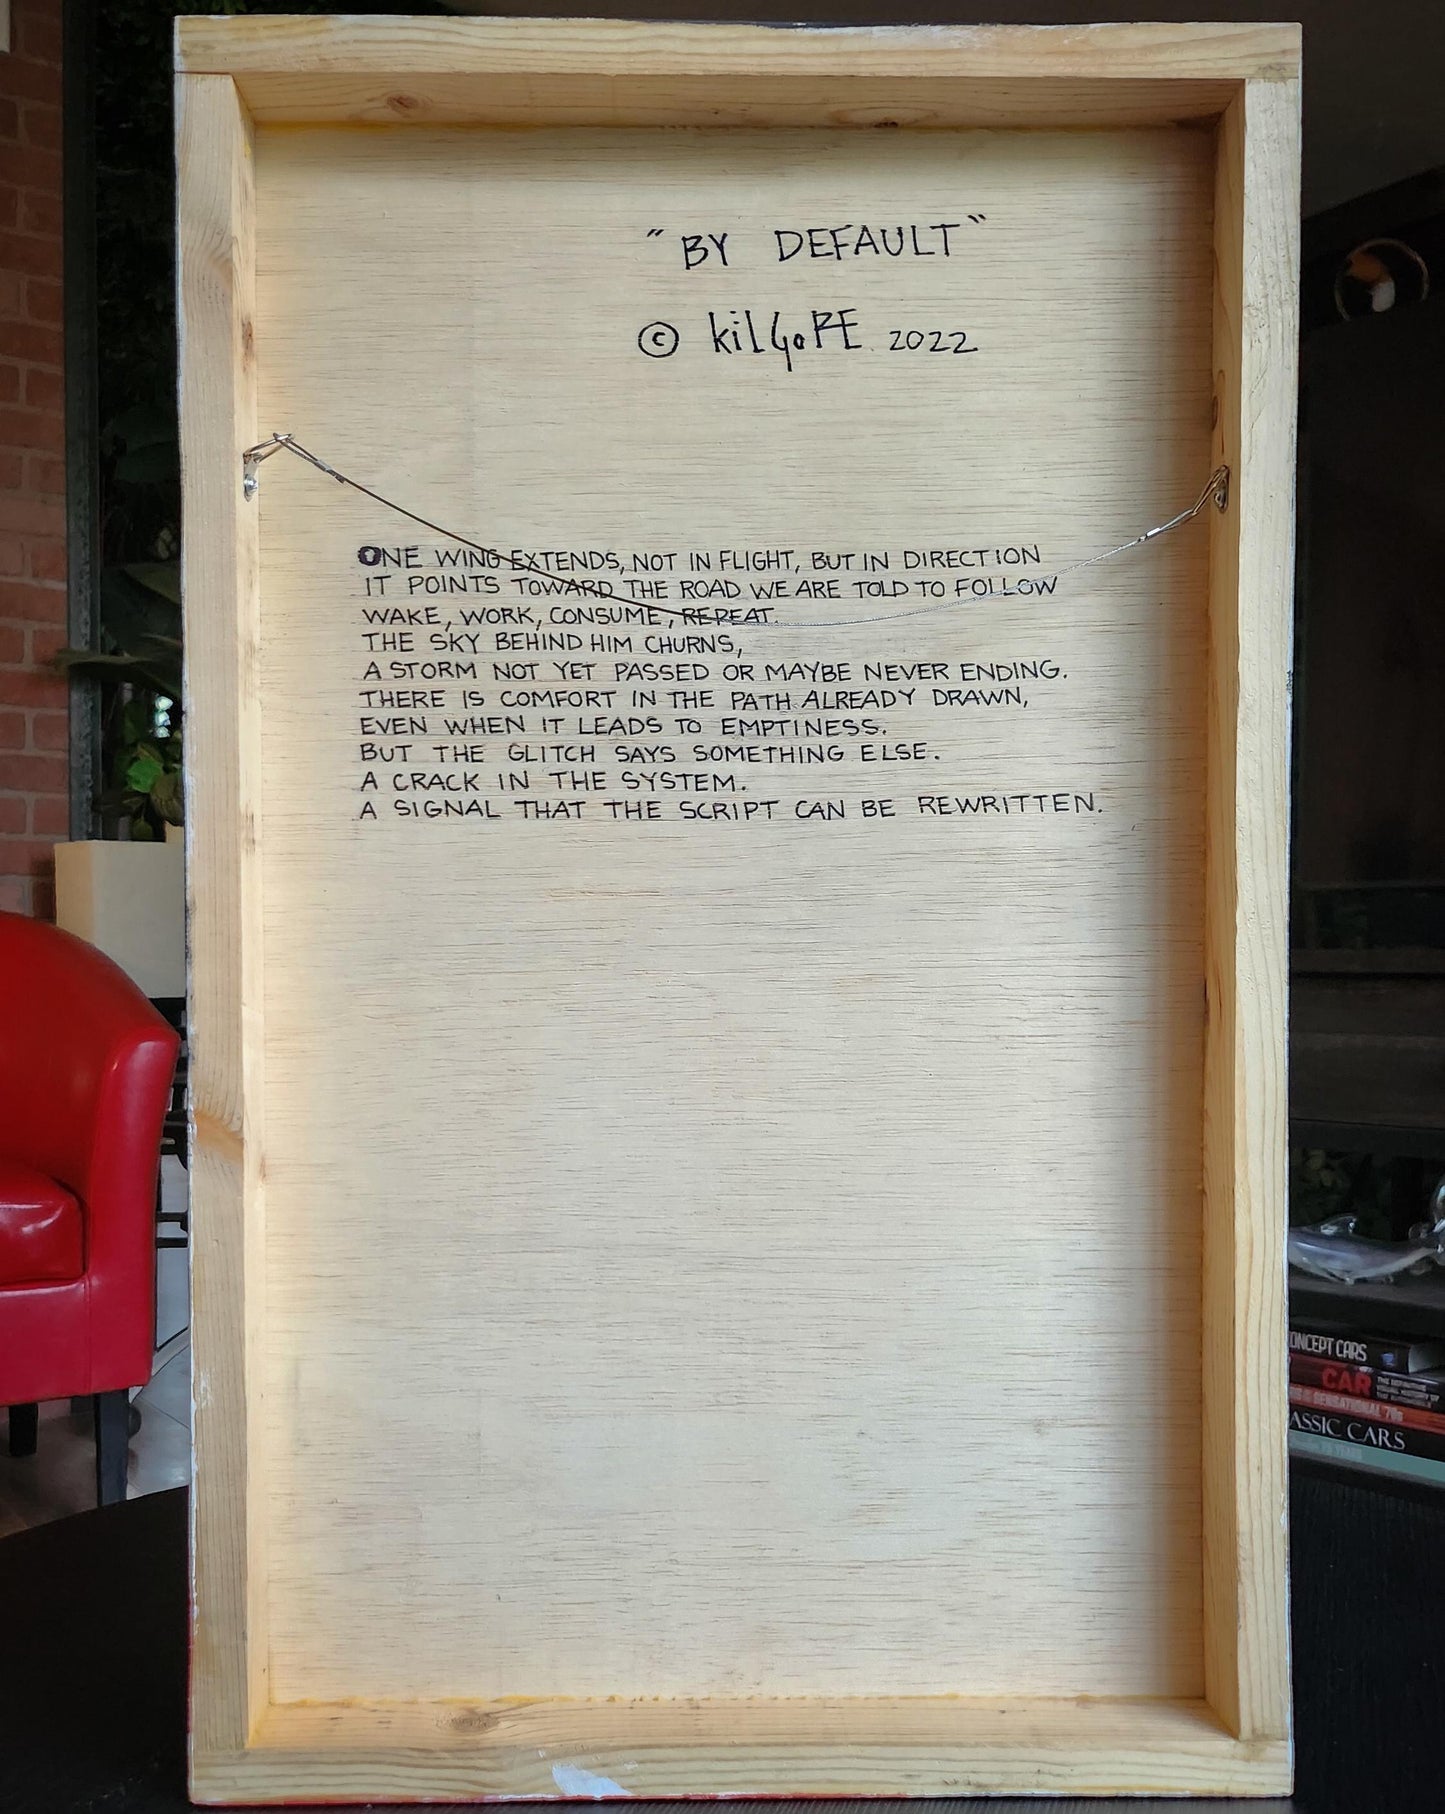 "BY DEFAULT"
© kiLGoRE 2022
ONE WING EXTENDS, NOT IN FLIGHT, BUT IN DIRECTION
IT POINTS TOWARD THE ROAD WE ARE TOLD TO FOLLOW
WAKE, WORK, CONSUME, REPEAT.
THE SKY BEHIND HIM CHURNS,
A STORM NOT YET PASSED OR MAYBE NEVER ENDING.
THERE IS COMFORT IN THE PATH ALREADY DRAWN,
EVEN WHEN IT LEADS TO EMPTINESS.
BUT THE GLITCH SAYS SOMETHING ELSE.
A CRACK IN THE SYSTEM.
A SIGNAL THAT THE SCRIPT CAN BE REWRITTEN.
ONCEPT CARS
CAR THE DEFINITIVE
VISUAL HISTORY OF
THE AUTOMOBILE
SENSATIONAL 70s
ASSIC CARS